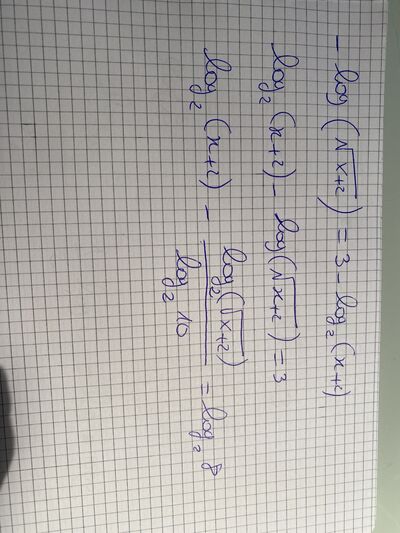 - log (√x+2) = 3 - log₂ (x+2)
log₂ (x+2) - log(√x+2) = 3
log₂ (x+2) - log₂(√x+2) / log₂ 10 = log₂ 8